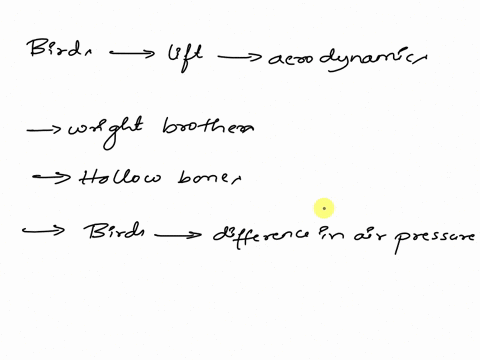 Birds → lift → aerodynamics
→ wright brothers
→ Hollow bones
→ Birds → difference in air pressure